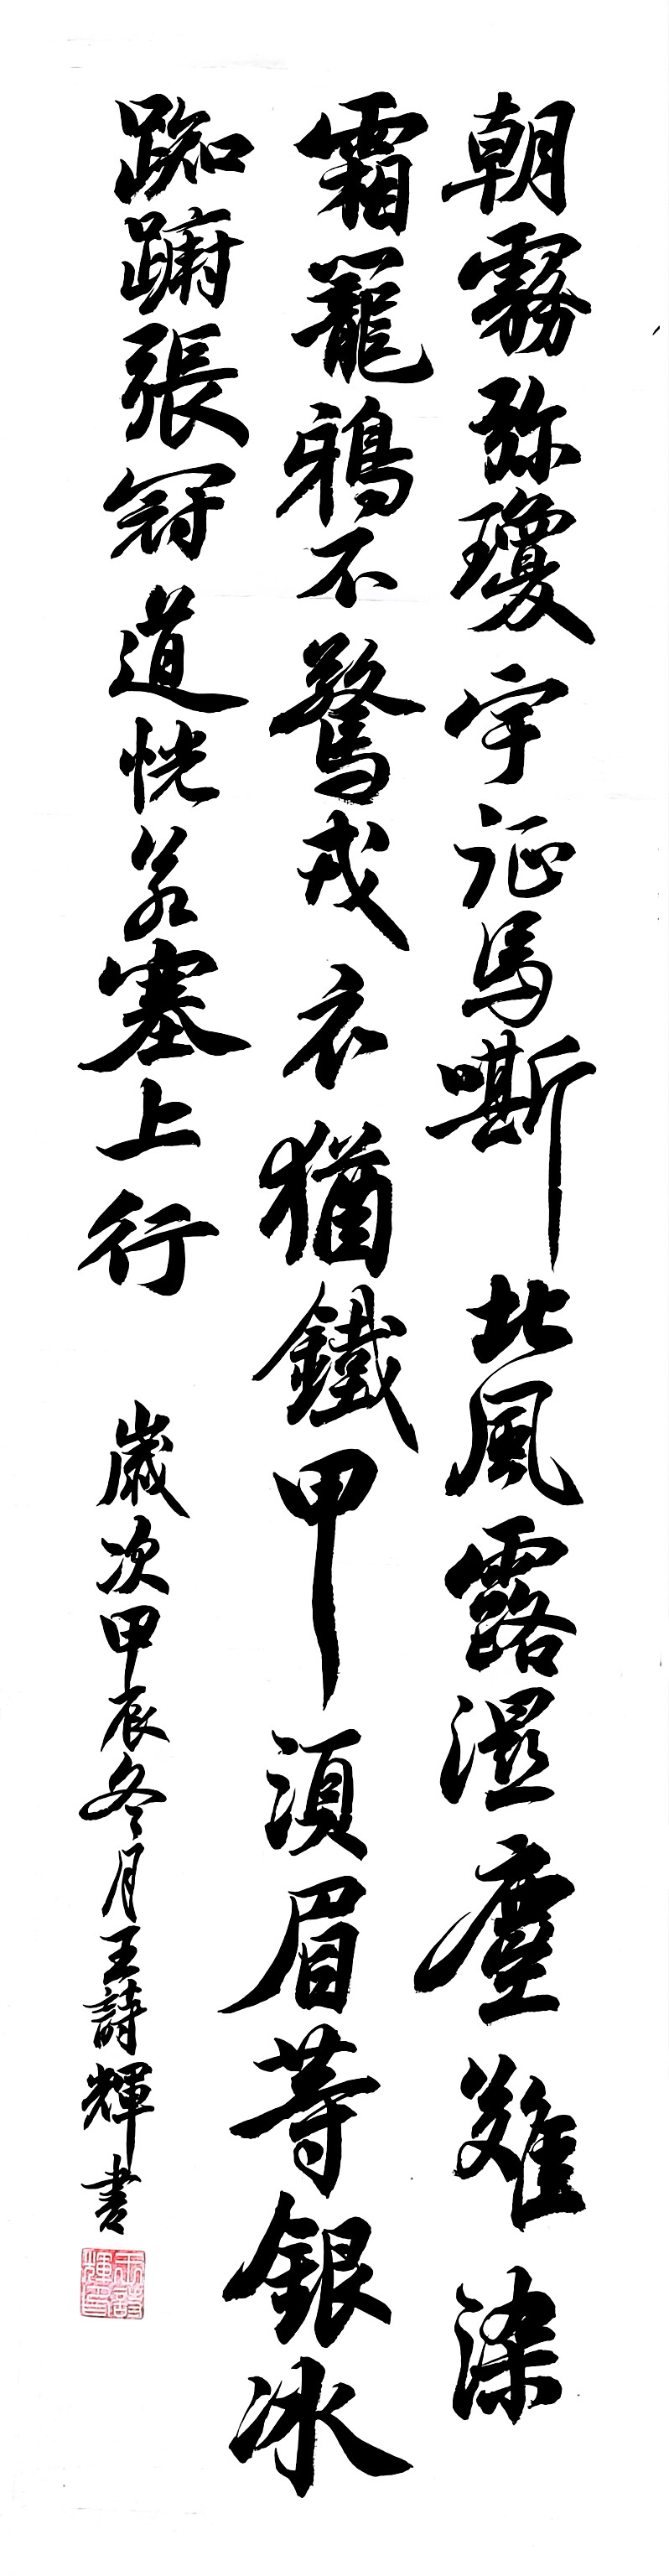 朝霧弥瓊宇征馬嘶北風露濕塵難染
霜籠鴉不驚戎衣猶鐵甲須眉等銀冰
踟躕張冠道恍若塞上行
歲次甲辰冬月王詩輝書